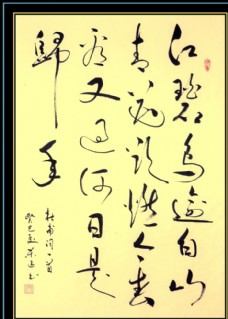 江碧鳥逾白山
青花欲燃今春
看又過何日是
歸年
杜甫詩一首
癸巳